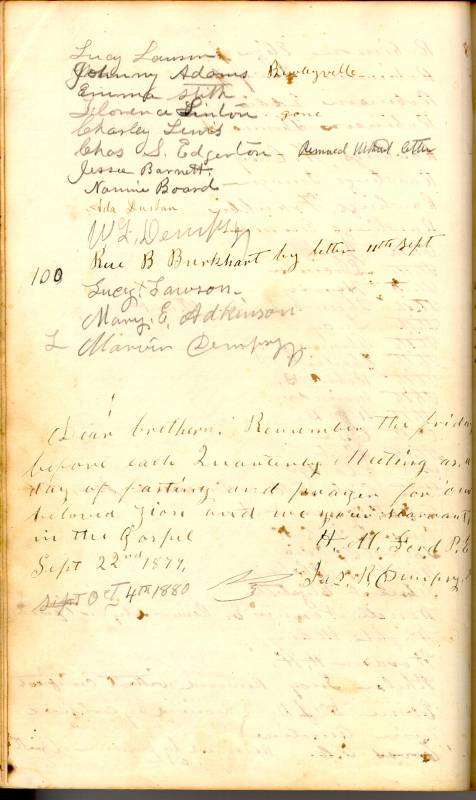 Lucy Lawson
Johnny Adams Bewleyville
Emma Stith
Florence Linton gone
Charley Lewis
Chas S. Edgerton - Removed Without letter
Jessie Barnett.
Nannie Board
Ada Durban
W L Dempsy
100 Rue B Burkhart by letter 11th Sept
Lucy Lawson
Mary. E. Adkinson
L Marvin Dempsy
Dear brethern. Remember the friday
before each Quarterly Meeting as a
day of fasting and prayer for our
beloved Zion and we your servants
in the Gospel
H. M. Ford P. E
Sept 22nd 1879.
Jas. R Dempsy
Sept Oct 4th 1880